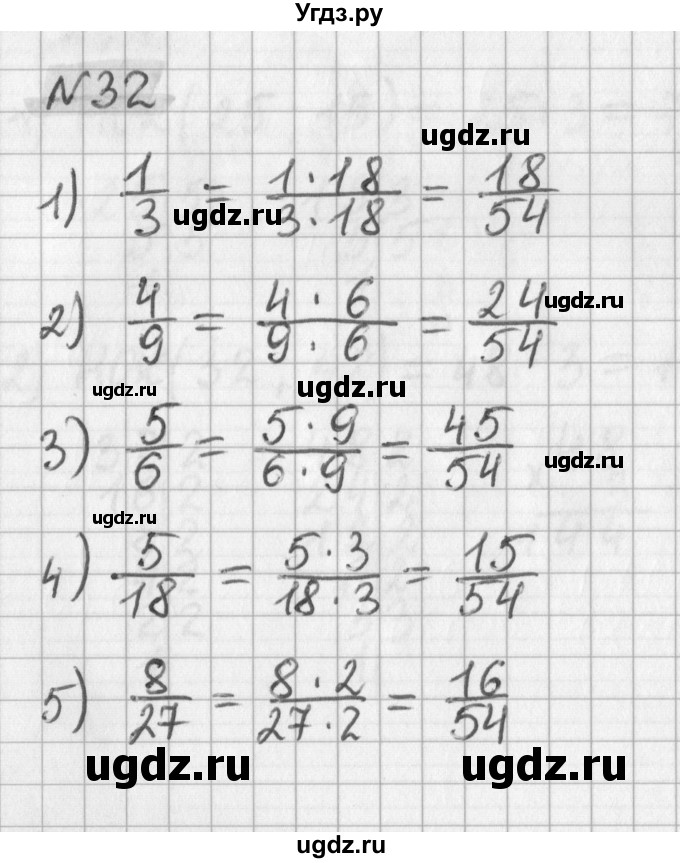 Угдз.ру
№32
ugdz.ru
1) 1/3 = 1·18/3·18 = 18/54
ugdz.ru
2) 4/9 = 4·6/9·6 = 24/54
ugdz.ru
ugdz.ru ugdz.ru
3) 5/6 = 5·9/6·9 = 45/54
ugdz.ru
ugdz.ru
4) 5/18 = 5·3/18·3 = 15/54
5) 8/27 = 8·2/27·2 = 16/54
ugdz.ru ugdz.ru
ugdz.ru